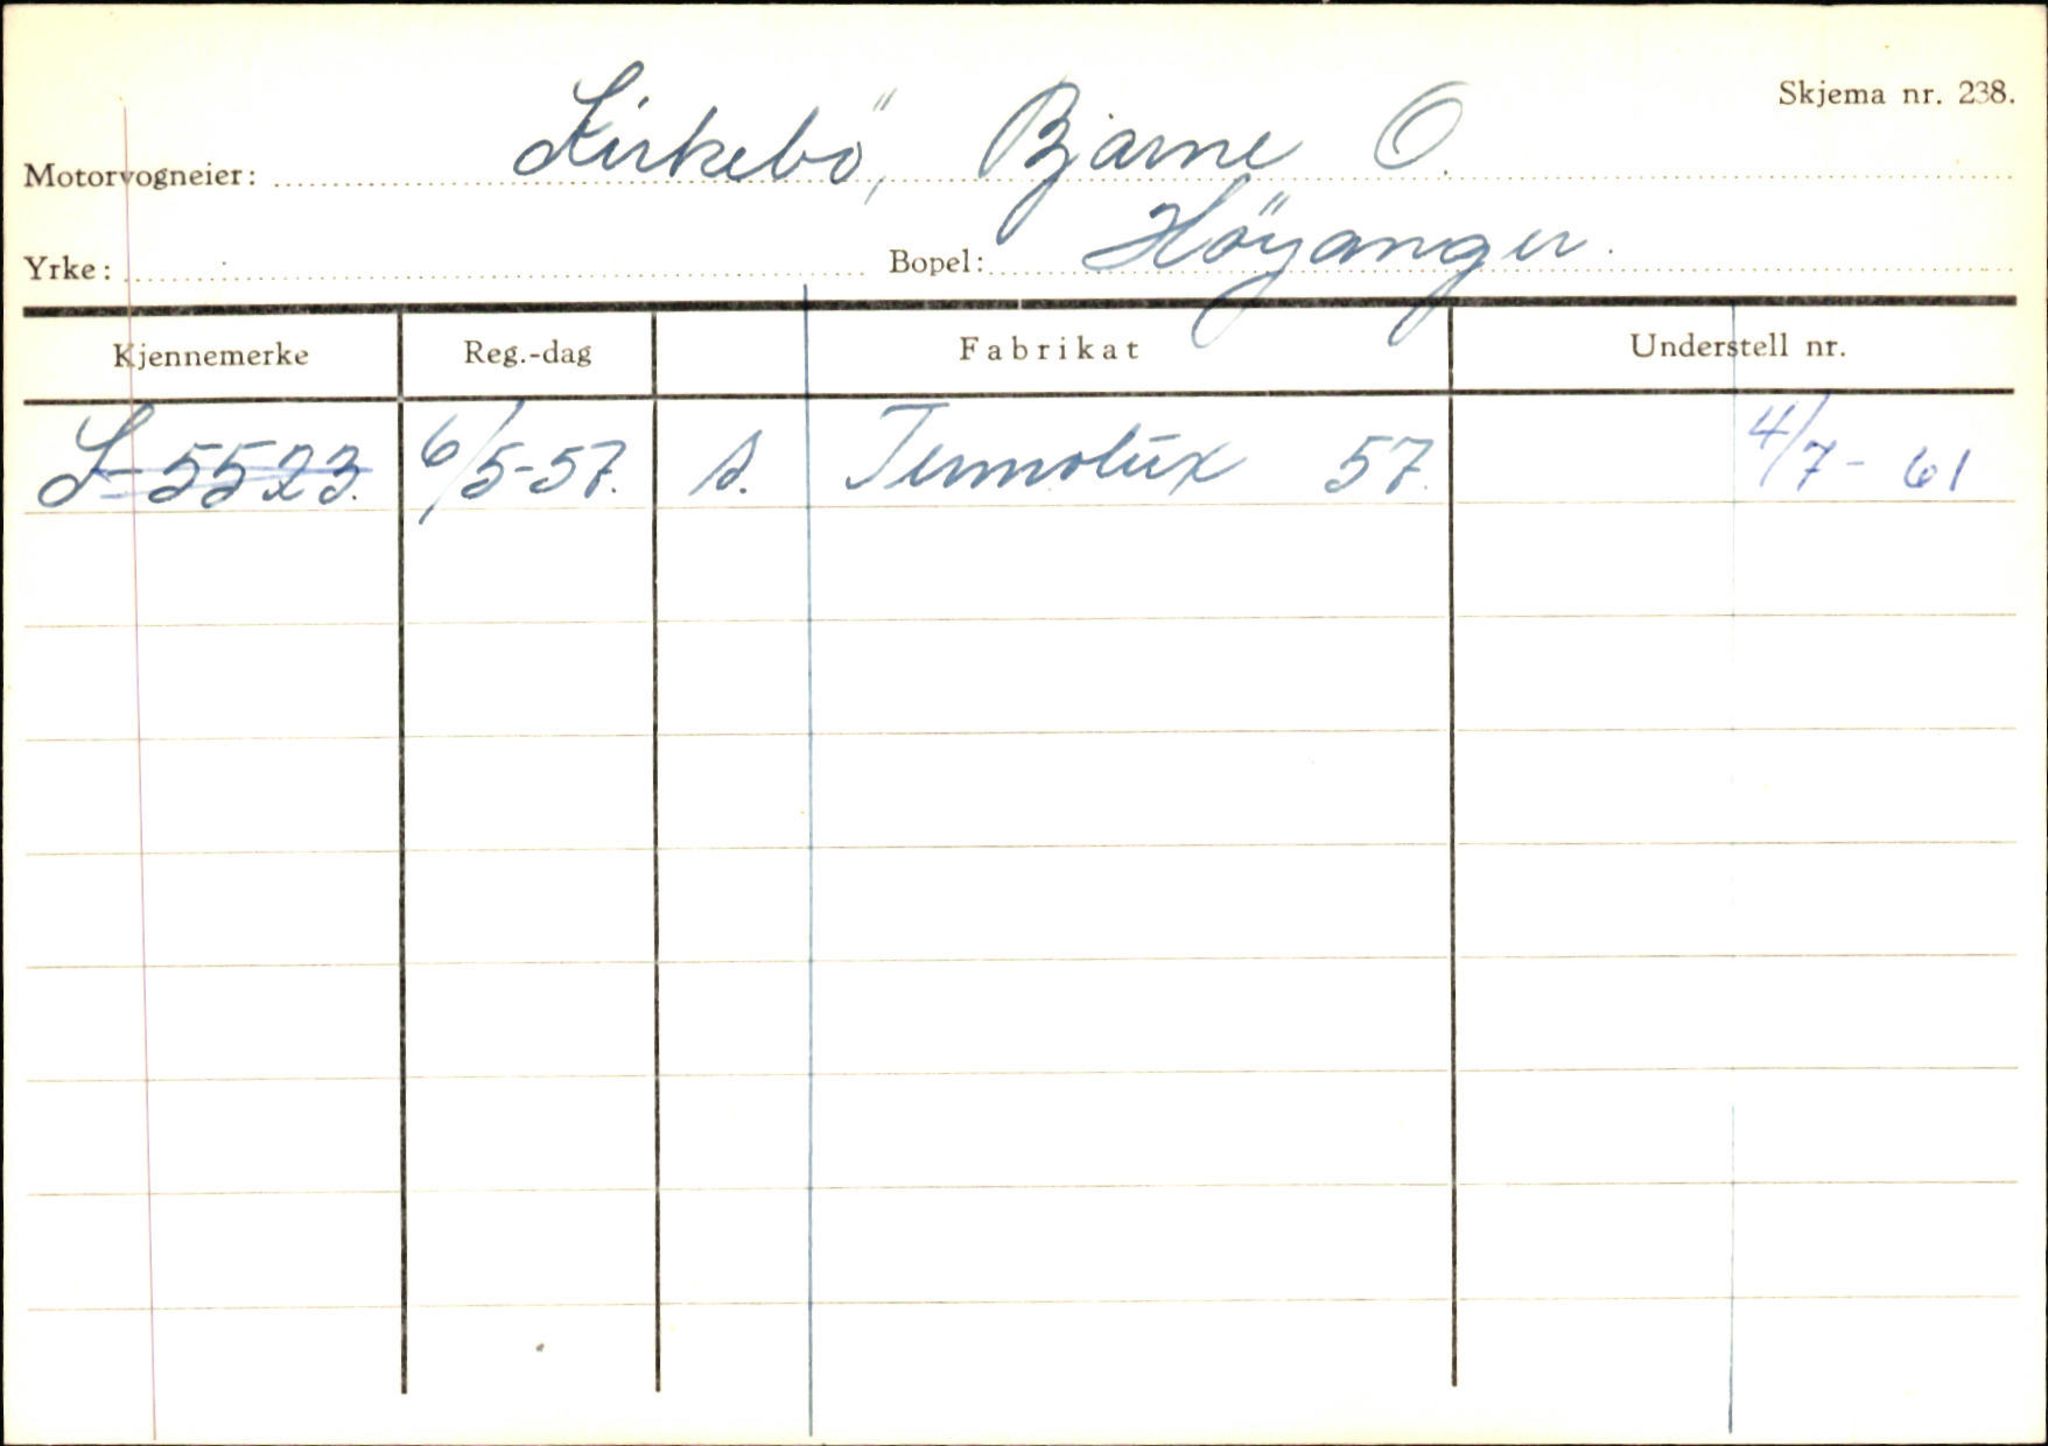 Skjema nr. 238.
Motorvogneier: Kirkebö, Bjarne O.
Yrke: Bopel: Höyanger.
Kjennemerke Reg.-dag Fabrikat Understell nr.
S-5523. 6/5-57. s. Termolux 57. 4/7-61